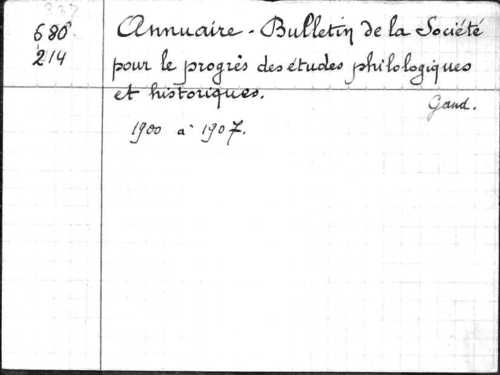 680
214
Annuaire - Bulletin de la Société
pour le progrès des études philologiques
et historiques.
Gand.
1900 à 1907.